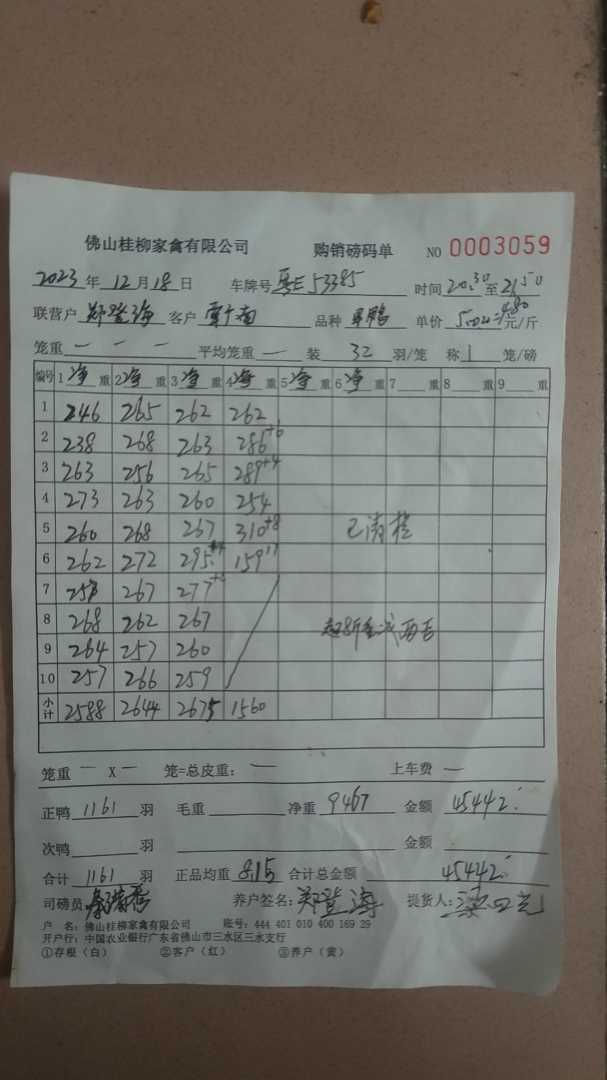 佛山桂柳家禽有限公司 购销磅码单 NO 0003059
2023年12月18日 车牌号粤E53385 时间20.30至21.50
联营户郑登海 客户 品种 单价 4.80 元/斤
笼重— — — 平均笼重— 装32羽/笼 称1笼/磅
编号 1净重 2净重 3净重 4净重 5净重 6净重 7重 8重 9重
1 246 265 262 262
2 238 268 263 286+6
3 263 256 265 289+4
4 273 263 260 254
5 260 268 267 310+8 已清栏
6 262 272 295 159
7 257 267 277
8 268 262 267
9 264 257 260
10 257 266 259
小计 2588 2644 2675 1560
笼重— X— 笼=总皮重:— 上车费—
正鸭1161羽 毛重 净重9467 金额45442
次鸭 羽 金额
合计1161羽 正品均重8.15 合计总金额45442
司磅员: 养户签名:郑登海 提货人:
户 名: 佛山桂柳家禽有限公司 账号: 444 401 010 400 169 29
开户行: 中国农业银行广东省佛山市三水区三水支行
①存根(白) ②客户(红) ③养户(黄)